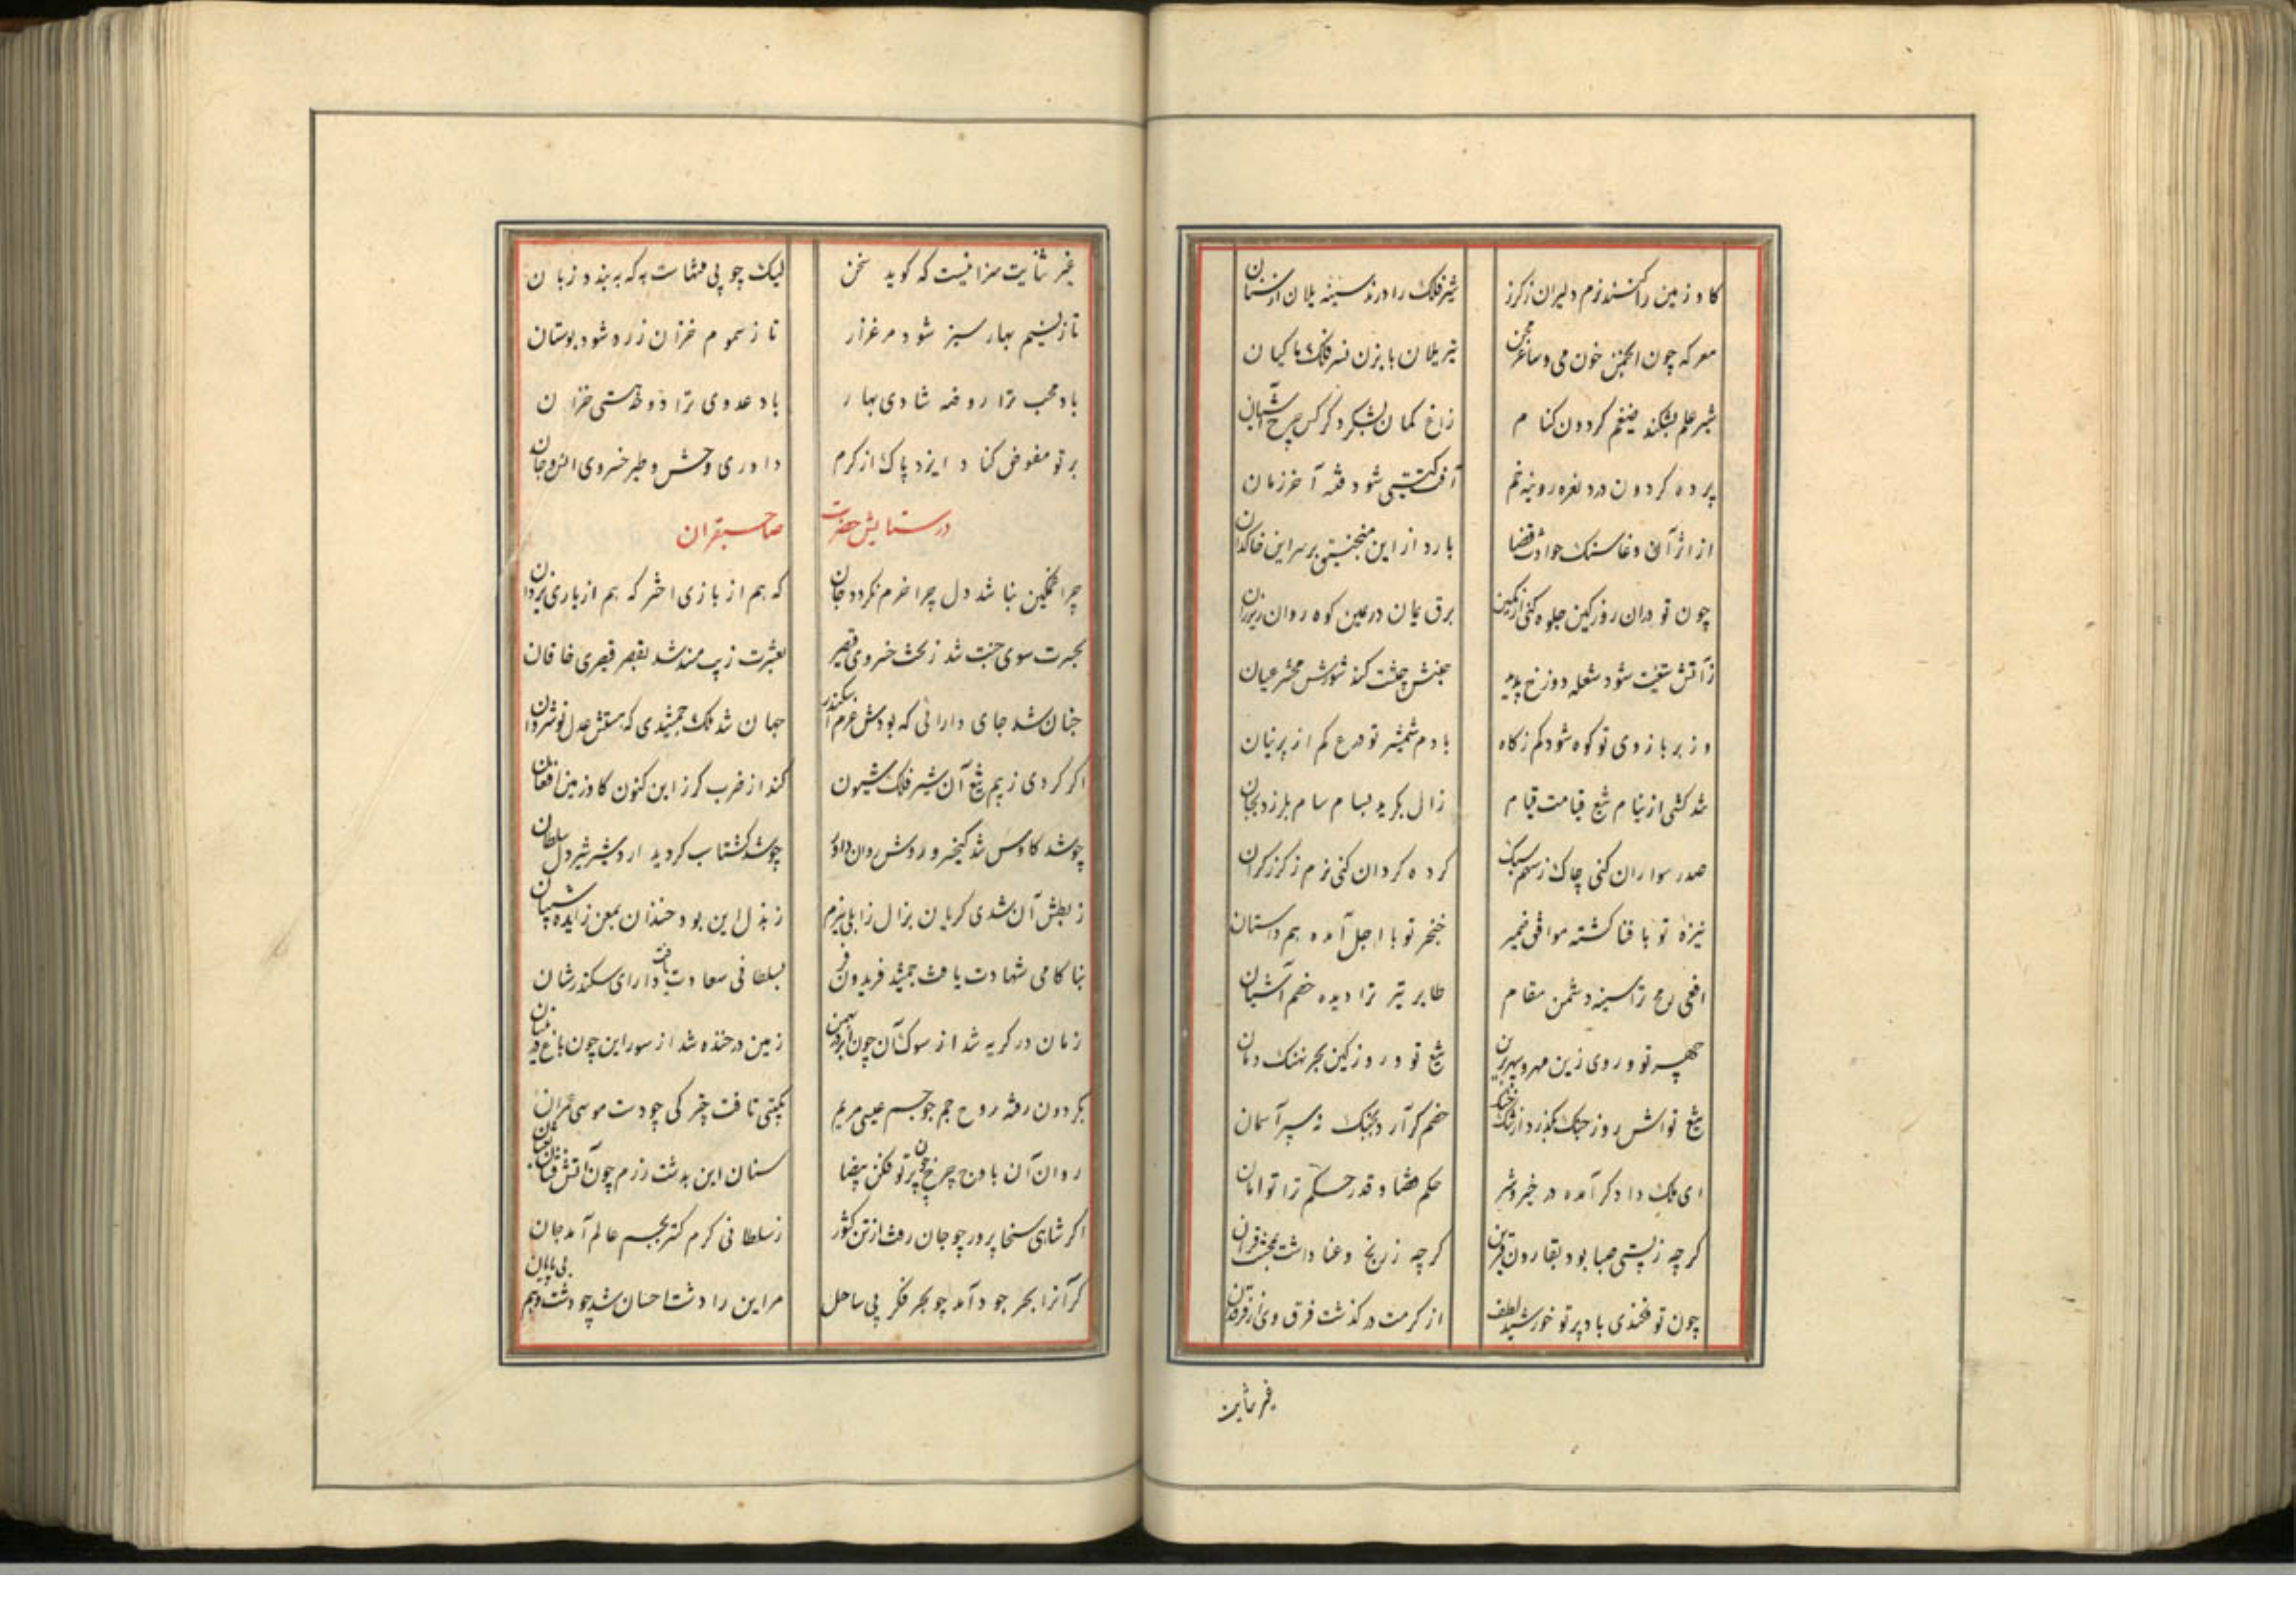 کاو زمین را کنند نرم دلیران ز کرز شیر فلک را درند سینه یلان از سنان
معرکه چون انجمن خون می و ساغر تیر یلان بابزن نسر فلک ماکیان
شیر علم بشکند ضیغم کردون کنام زاغ کمان بشکرد کرکس چرخ آشیان
پرده کردون درد نعره رویینه خم آفت کیتی شود فتنه آخر زمان
از اثر آن وغا سنک حوادث قضا بارد از این منجنیق بر سر این خاکدان
چون تو دران روز کین جلوه کنی از کمین برق یمان در یمین کوه روان زیر ران
ز آتش تیغت شود شعله دوزخ پدید جنبش جیشت کند شورش محشر عیان
وز بر بازوی تو کوه شود کم ز کاه با دم شمشیر تو درع کم از پرنیان
شد کشی از نیام تیغ قیامت قیام زال بکرید بسام سام بلرزد بجان
صدر سواران کنی چاک ز سهم سبک کرده کردان کنی نرم ز کرز کران
نیزه تو با قضا کشته موافق ضمیر خنجر تو با اجل آمده هم داستان
افعی رمح ترا سینه دشمن مقام طایر تیر ترا دیده خصم آشیان
چهر تو و روی زین مهر و سپهر برین تیغ تو و روز کین بحر و نهنک دمان
تیغ تواش روز جنک بکذرد از تنک خنک خصم کر آرد بجنک نه سپر آسمان
ای ملک دادکر آمده در خیر و شر حکم قضا و قدر حکم ترا توامان
کرچه ز پستی صبا بود بقارون قرین کرچه ز رنج و عنا داشت ببخت قران
چون تو فکندی باو پرتو خورشید لطف از کرمت در کذشت فرق وی از فرقدان
غیر ثنایت
غیر ثنایت سزا نیست که کوید سخن لیک چو بی منتهاست به که به بندد زبان
تا ز نسیم بهار سبز شود مرغزار تا ز سموم خزان زرد شود بوستان
باد محب ترا روضه شادی بهار باد عدوی ترا دوحه هستی خزان
بر تو مفوض کناد ایزد پاک از کرم داوری وحش و طیر خسروی انس و جان
در ستایش حضرت صاحبقران
چرا غمکین نباشد دل چرا خرم نکردد جان که هم از بازی اختر که هم از یاری یزدان
بحسرت سوی جنت شد ز تخت خسروی قیصر بعشرت زیب مسند شد بقصر قیصری خاقان
جنان شد جای دارائی که بودش عزم اسکندر جهان شد ملک جمشیدی که هستش عدل نوشروان
اکر کردی ز بیم تیغ آن شیر فلک شیون کند از ضرب کرز این کنون کاو زمین افغان
چو شد کاوس شد کیخسرو روشن روان داور چو شد کشتاسب کردید اردشیر شیردل سلطان
ز بطش آن شدی کریان بزال زابلی نیرم ز بذل این بود خندان بمعن زایده شیبان
بنا کامی شهادت یافت جمشید فریدون فر بسلطانی سعادت یافت دارای سکندر شان
زمان در کریه شد از سوک آن چون ابر در بهمن زمین در خنده شد از سور این چون باغ در نیسان
بکردون رفته روح جم چو جسم عیسی مریم بکیتی تافت چتر کی چو دست موسی عمران
روان آن باوج چرخ چون پرتو فکن بیضا سنان این بدشت رزم چون آتش فشان ثعبان
اکر شاهی سخا پرور چو جان رفت از تن کشور ز سلطانی کرم کستر بجسم عالم آمد جان
کر آنرا بحر جود آمد چو بحر فکر بی ساحل مر این را دشت احسان شد چو دشت وهم بی پایان